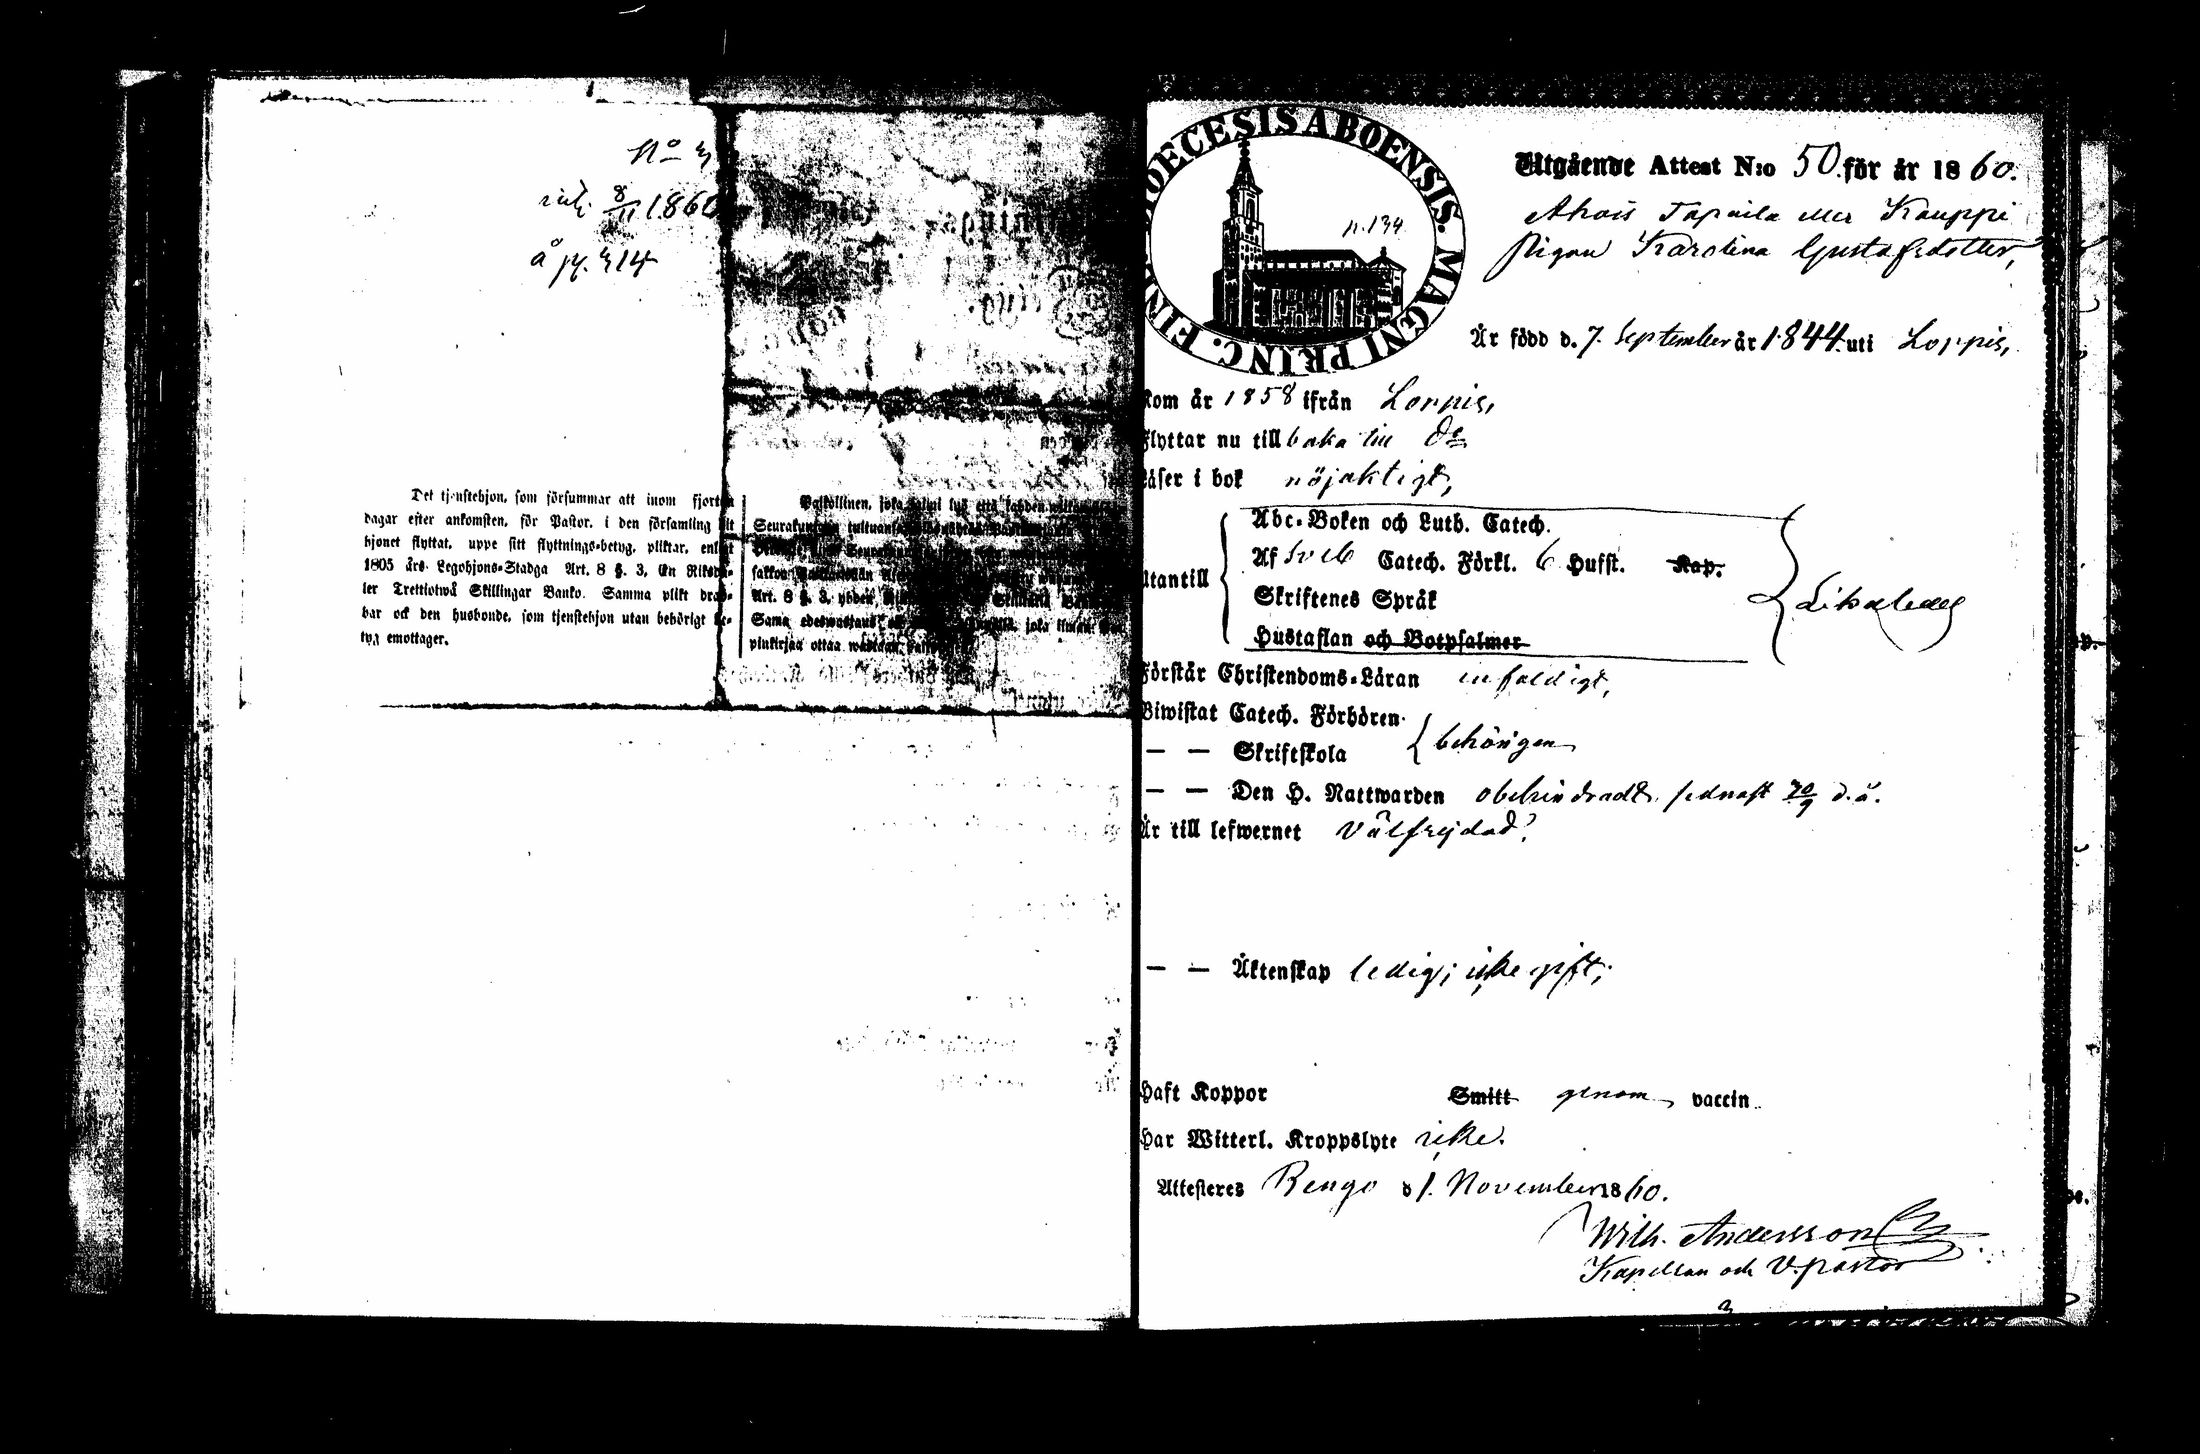 No
ink. 8/11 1860
å pg. 414
Det tjenstehjon, som försummar att inom fjorton
dagar efter ankomsten, för Pastor, i den församling dit
hjonet flyttat, uppte sitt flyttnings-betyg, pliktar, enligt
1805 års Legohjons-Stadga Art. 8 §. 3, En Riksda-
ler Trettiotwå Skillingar Banko. Samma plikt drab-
bar ock den husbonde, som tjenstehjon utan behörigt be-
tyg emottager.
Palkollinen, joka
Seurakunnan
Art. 8 §. 3,
Sama edeswastaus
pinkirjaa ottaa wastaan,
DIOECESIS ABOENSIS. MAGNI PRINC. FINL
n. 134
Utgående Attest N:o 50 för år 1860.
Ahois Tapaila eller Kauppi
Pigan Karolina Gustafsdotter,
Är född d. 7. September år 1844. uti Loppis,
Kom år 1858 ifrån Loppis,
Flyttar nu till baka till do
Läser i bok nöjaktigt,
Utantill
Abc-Boken och Luth. Catech.
Af Sveb Catech. Förkl. 6 Hufst. Kap.
Skriftenes Språk
Hustaflan och Botpsalmer
Likaledes
Förstår Christendoms-Läran enfaldigt,
Biwistat Catech. Förhören
— — Skriftskola
behörigen
— — Den H. Nattwarden obehindradt, sednast 30/9 d. å.
Är till lefwernet välfrejdad;
— — Äktenskap ledig; icke gift;
Haft Koppor Smitt genom vaccin
Har Witterl. Kroppslyte icke.
Attesteres Rengo d 1. November 1860.
Wilh. Andersson
Kapellan och V. pastor